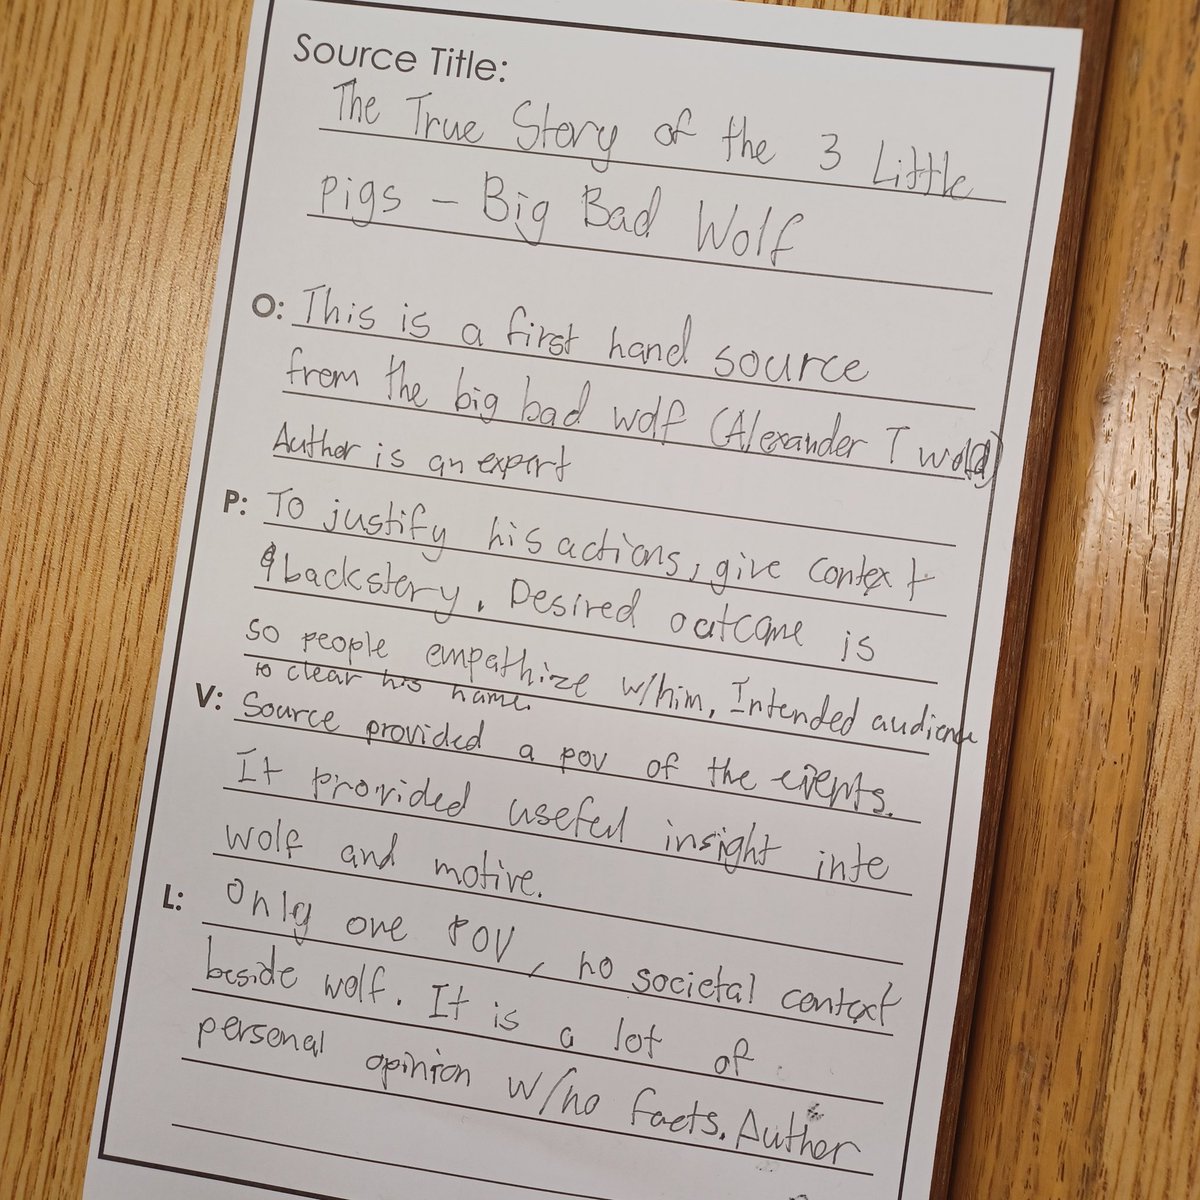 Source Title:
The True Story of the 3 Little
pigs – Big Bad Wolf
O: This is a first hand source
from the big bad wolf (Alexander T wolf)
Author is an expert
P: To justify his actions, give context
& backstory. Desired outcome is
so people empathize w/him, Intended audience
to clear his name.
V: Source provided a pov of the events.
It provided useful insight into
wolf and motive.
L: Only one POV, no societal context
beside wolf. It is a lot of
personal opinion w/no facts. Author